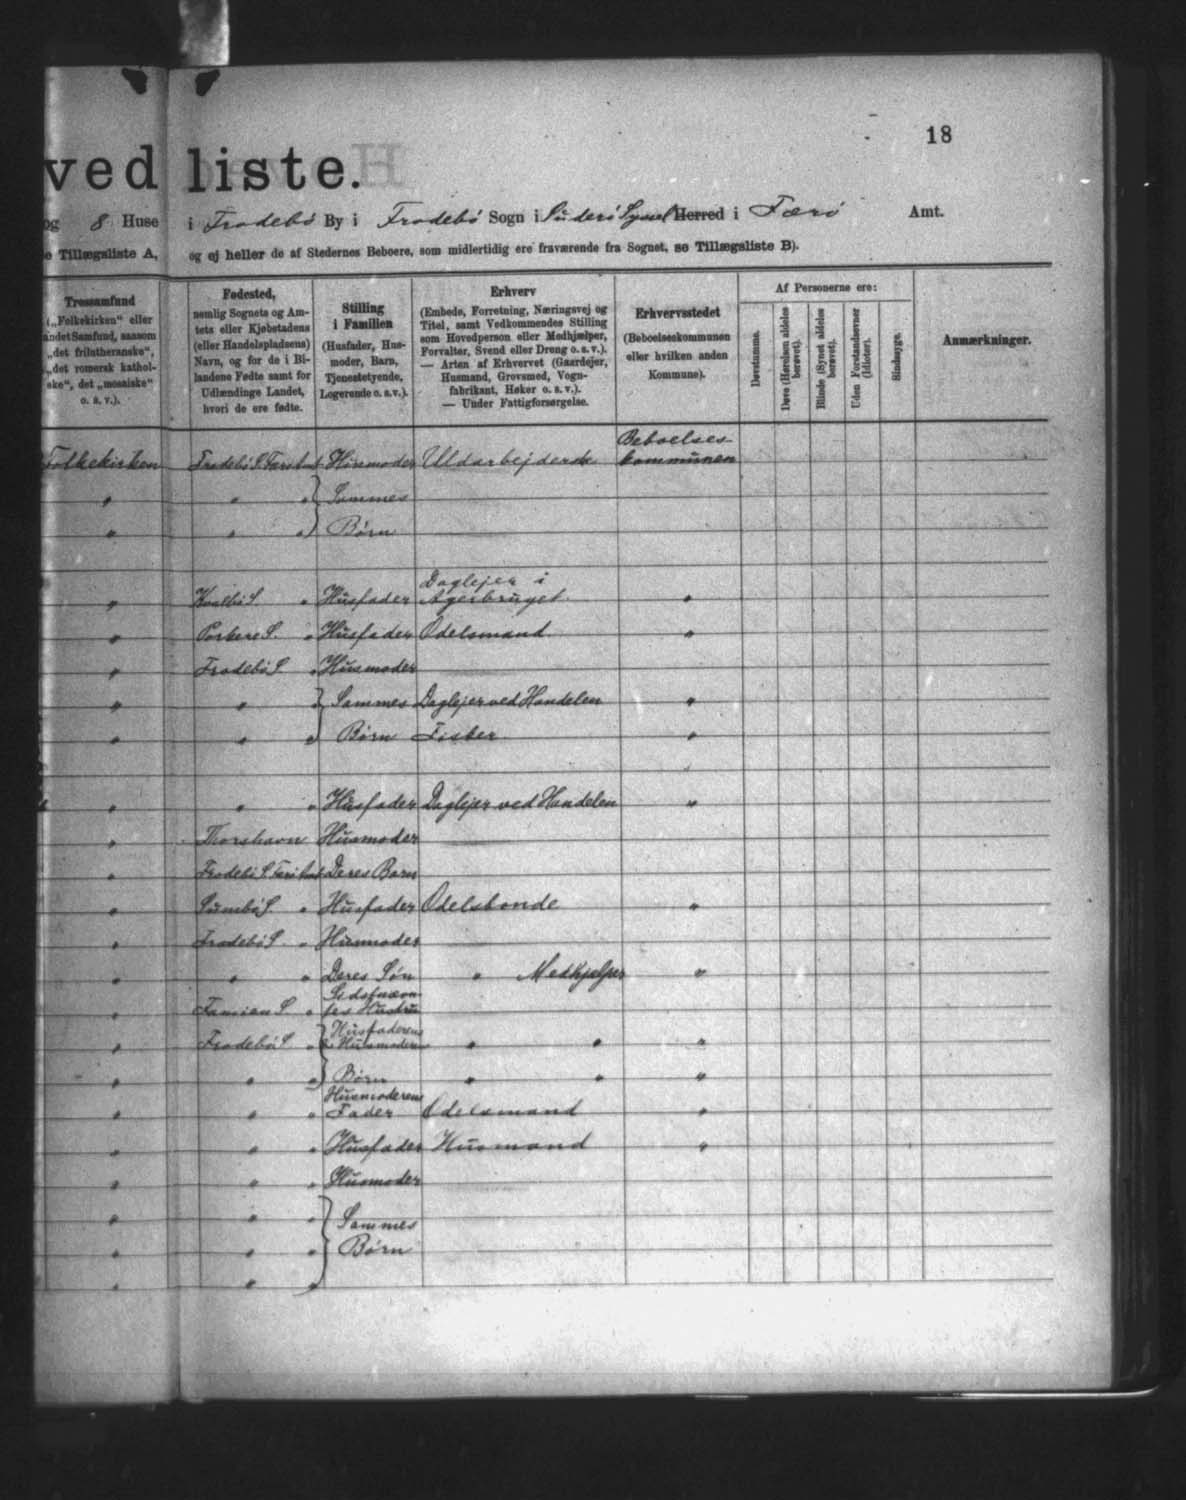 18
ved liste.
og 8 Huse i Frodebø By i Frodebø Sogn i Suderø Syssel Herred i Færø Amt.
e Tillægsliste A, og ej heller de af Stedernes Beboere, som midlertidig ere fraværende fra Sognet, se Tillægsliste B).
Trossamfund
(„Folkekirken“ eller
andet Samfund, saasom
„det frilutheranske“,
„det romersk kathol-
ske“, det „mosaiske“
o. s. v.).
Fødested,
nemlig Sognets og Am-
tets eller Kjøbstadens
(eller Handelspladsens)
Navn, og for de i Bi-
landene Fødte samt for
Udlændinge Landet,
hvori de ere fødte.
Stilling
i Familien
(Husfader, Hus-
moder, Barn,
Tjenestetyende,
Logerende o. s. v.).
Erhverv
(Embede, Forretning, Næringsvej og
Titel, samt Vedkommendes Stilling
som Hovedperson eller Medhjælper,
Forvalter, Svend eller Dreng o. s. v.).
— Arten af Erhvervet (Gaardejer,
Husmand, Grovsmed, Vogn-
fabrikant, Høker o. s. v.).
— Under Fattigforsørgelse.
Erhvervsstedet
(Beboelseskommunen
eller hvilken anden
Kommune).
Af Personerne ere:
Døvstumme.
Døve (Hørelsen aldeles
berøvet).
Blinde (Synet aldeles
berøvet).
Uden Forstandsevner
(Idioter).
Sindssyge.
Anmærkninger.
Folkekirken Frodebø S. Husmoder Uldarbejderske Beboelses-
kommunen
" " " Sammes
" " " Børn
" Kvalbø S. " Husfader Daglejer i
Agerbruget. "
" Porkere S. " Husfader Odelsmand "
" Frodebø S. " Husmoder
" " " Sammes Daglejer ved Handelen "
" " " Børn Fisker "
" " " Husfader Daglejer ved Handelen "
" Thorshavn Husmoder
" Frodebø S. Deres Barn
" Sumbø S. " Husfader Odelsbonde "
" Frodebø S. " Husmoder
" " " Deres Søn " Medhjælper "
" Famien S. " Sidstnævn-
tes Hustru
" Frodebø S. " Husfaderens
& Husmoderens " " "
" " " Børn " " "
" " " Husmoderens
Fader Odelsmand "
" " " Husfader Husmand "
" " " Husmoder
" " " Sammes
" " " Børn
" " "